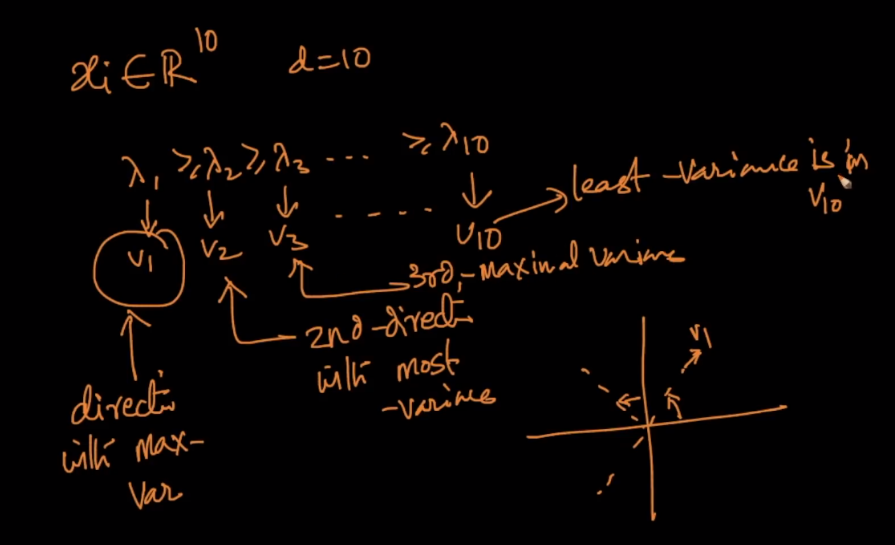 xi ∈ ℝ^10 d=10
λ1 ≥ λ2 ≥ λ3 ... ≥ λ10
v1 v2 v3 .... v10
least-variance is in
v10
3rd,-maximal variance
2nd-directi
with most
-variance
directi
with max-
var
v1